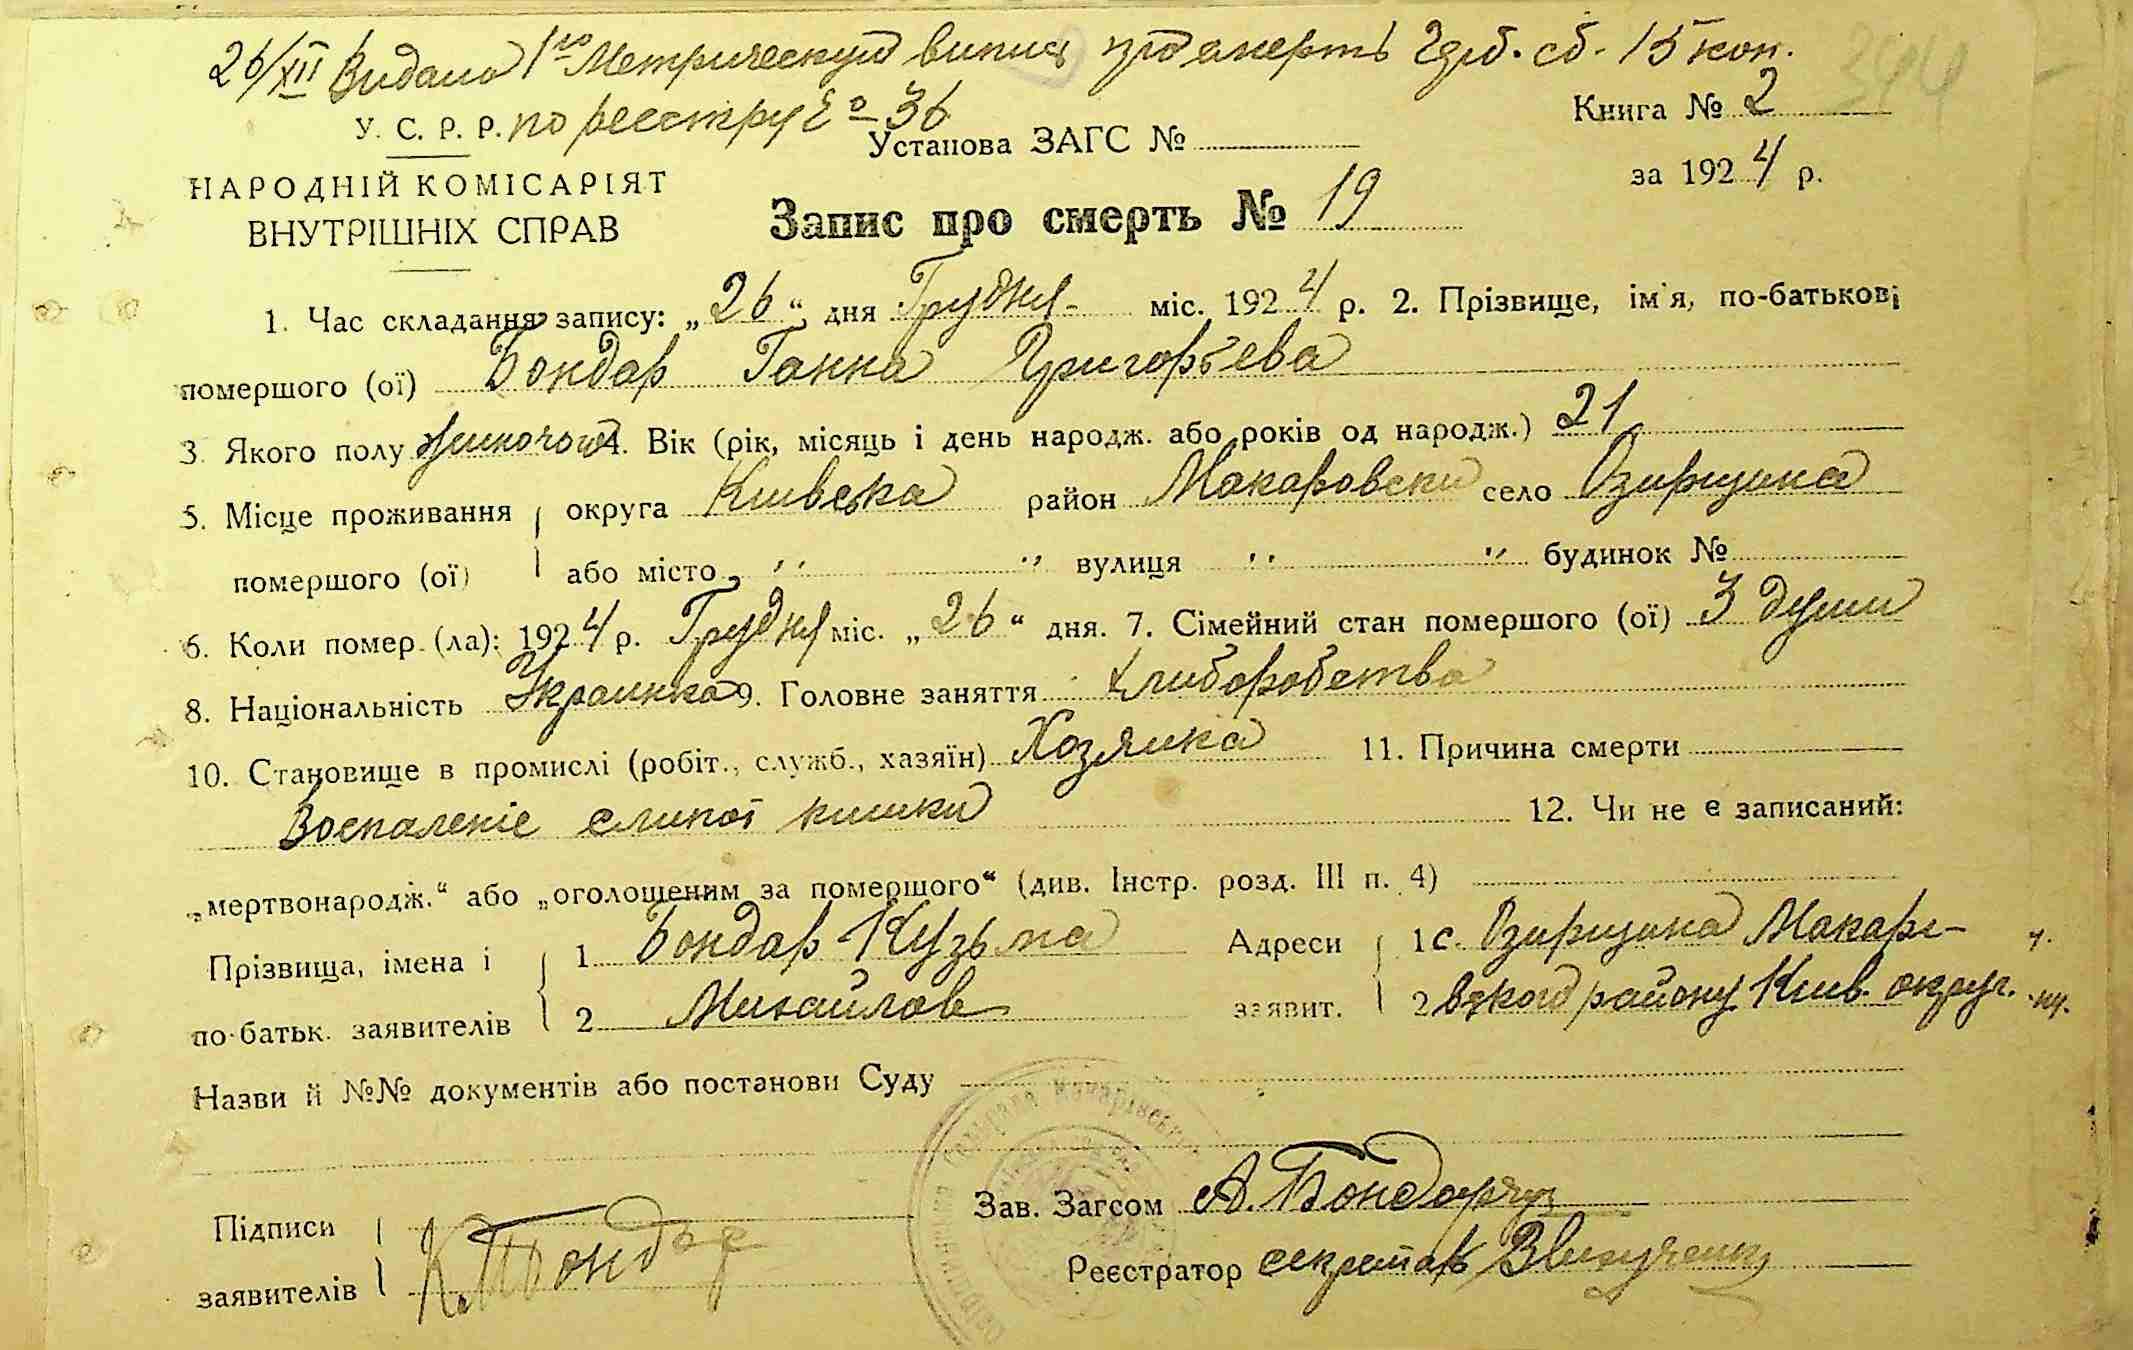 26/XII Видано 1ну Метрическую випис про смерть Гдб. сб. 15 коп.
по реестру № 36
Книга № 2
У. С. Р. Р.
Установа ЗАГС №
за 1924 р.
НАРОДНІЙ КОМІСАРІЯТ
ВНУТРІШНІХ СПРАВ
Запис про смерть № 19
1. Час складання запису: „26“ дня Грудня міс. 1924 р. 2. Прізвище, ім'я, по-батькові
помершого (ої) Бондар Ганна Григорьева
3. Якого полу жиночого 4. Вік (рік, місяць і день народж. або років од народж.) 21
5. Місце проживання округа Киивська район Макаровски село Озирщина
помершого (ої) або місто " " вулиця " " будинок №
6. Коли помер (ла): 1924 р. Грудня міс. „26“ дня. 7. Сімейний стан помершого (ої) 3 души
8. Національність Украинка 9. Головне заняття хлиборобства
10. Становище в промислі (робіт., служб., хазяїн) Хозяика 11. Причина смерти
Воспаленіе слипоі кишки 12. Чи не є записаний:
„мертвонародж.“ або „оголошеним за помершого“ (див. Інстр. розд. III п. 4)
Прізвища, імена і 1 Бондар Кузьма Адреси 1 с. Озирщина Макаро-
по-батьк. заявителів 2 Михайлов заявит. 2 вского району Киив. округ.
Назви й №№ документів або постанови Суду
Зав. Загсом А. Бондарчук
Підписи
К. Бондар
заявителів
Реєстратор секретарь